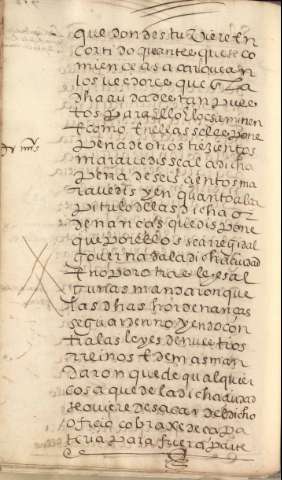 que donde stuviere en
cortido quantes que se co
miencen a sacar que an
los veedores que esta
dha ciudad estan pues
tos para ello lo esaminen
e como en ellas se le pone
pena de otros trezientos
maravedis sea la dicha
pena de seiscientos ma
ravedis y en quanto al ca
pitulo de las dichas or
denancas que dispone
que por ellos se a regida l
governa da la dicha ciudad
e no por otra e leyes al
gunas mandaron que
las dhas hordenancas
se guarden no yendo con
tra las leyes de nuestros
rreinos e demas man
daron que de qualquier
cosa que de la dicha ciudad
se oviere de sacar del dicho
oficio cobraxe de capa
teria para fuera parte